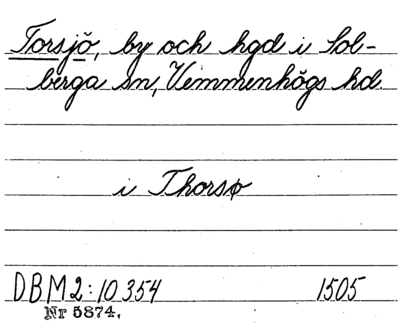 Torsjö, by och hgd i Sol-
berga sn, Vemmenhögs hd.
i Thorsø
DBM2:10 354 1505
Nr 5874.